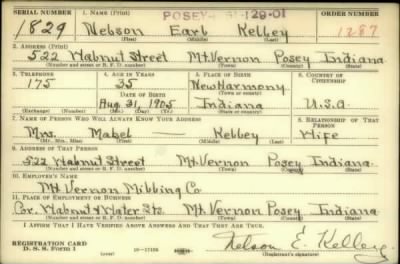 SERIAL NUMBER 1. NAME (Print) POSEY 129-01 ORDER NUMBER
1829 Nelson Earl Kelley 1287
(First) (Middle) (Last)
2. ADDRESS (Print)
522 Walnut Street Mt. Vernon Posey Indiana
(Number and street or R. F. D. number) (Town) (County) (State)
3. TELEPHONE 4. AGE IN YEARS 5. PLACE OF BIRTH 6. COUNTRY OF CITIZENSHIP
175 35 New Harmony
DATE OF BIRTH (Town or county)
Aug. 31, 1905 Indiana U.S.A
(Exchange) (Number) (Mo.) (Day) (Yr.) (State or country)
7. NAME OF PERSON WHO WILL ALWAYS KNOW YOUR ADDRESS 8. RELATIONSHIP OF THAT PERSON
Mrs. Mabel — Kelley Wife
(Mr., Mrs., Miss) (First) (Middle) (Last)
9. ADDRESS OF THAT PERSON
522 Walnut Street Mt. Vernon Posey Indiana
(Number and street or R. F. D. number) (Town) (County) (State)
10. EMPLOYER'S NAME
Mt. Vernon Milling Co
11. PLACE OF EMPLOYMENT OR BUSINESS
Cor. Walnut & Water Sts. Mt. Vernon Posey Indiana
(Number and street or R. F. D. number) (Town) (County) (State)
I AFFIRM THAT I HAVE VERIFIED ABOVE ANSWERS AND THAT THEY ARE TRUE.
REGISTRATION CARD
D. S. S. FORM 1 16—17105 Nelson E. Kelley
(Registrant's signature)